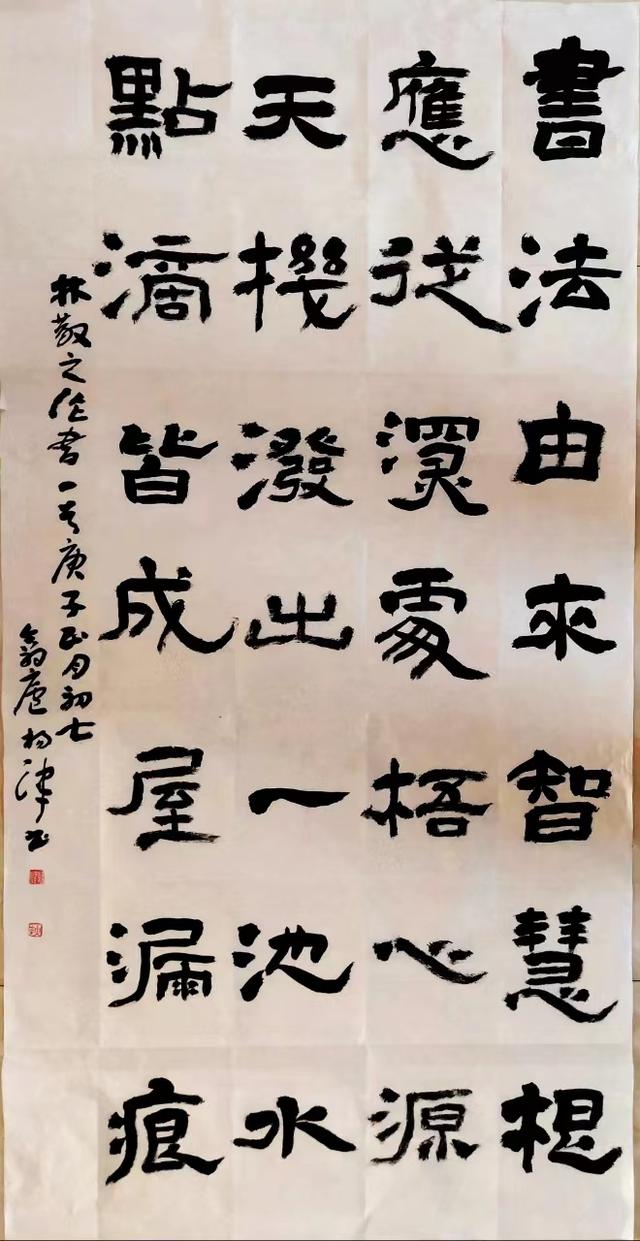 書法由來智慧根
應從深處悟心源
天機潑出一池水
點滴皆成屋漏痕
林散之论书一首庚子正月初七
庐杨津书